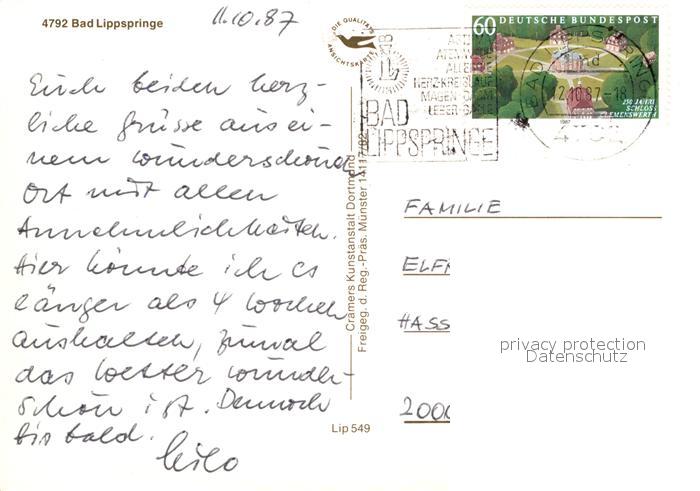 4792 Bad Lippspringe
11.10.87
DIE QUALITÄTS
ANSICHTSKARTE
60 DEUTSCHE BUNDESPOST
250 JAHRE
SCHLOSS
CLEMENSWERTH
1987
ASTHMA
ATEMWEGE
ALLERGIE
HERZ-KREISLAUF
MAGEN-DARM
LEBER-GALLE
BAD
LIPPSPRINGE
BAD LIPPSPRINGE
12.10.87-18
4792
Euch beiden herz-
liche Grüsse aus ei-
nem wunderschönen
Ort mit allen
Annehmlichkeiten.
Hier könnte ich es
länger als 4 Wochen
aushalten, zumal
das Wetter wunder-
schön ist. Dennoch
bis bald.
Cramers Kunstanstalt Dortmund
Freigeg. d. Reg.-Präs. Münster 1411/82
Lip 549
FAMILIE
ELFR
HASS
2000
privacy protection
Datenschutz